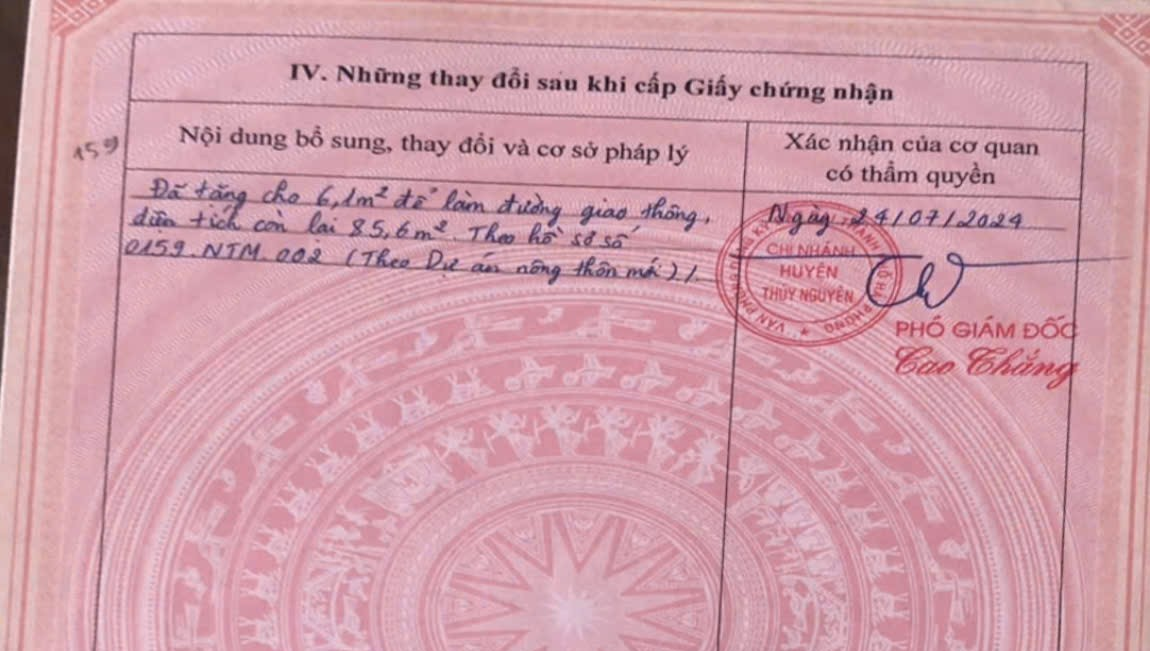 IV. Những thay đổi sau khi cấp Giấy chứng nhận
Nội dung bổ sung, thay đổi và cơ sở pháp lý
Xác nhận của cơ quan
có thẩm quyền
159
Đã tặng cho 6,1m² để làm đường giao thông,
diện tích còn lại 85,6m². Theo hồ sơ số
0159.NTM.002 (Theo Dự án nông thôn mới)./.
Ngày 24/07/2024
CHI NHÁNH
HUYỆN
THỦY NGUYÊN
VĂN PHÒNG
PHÓ GIÁM ĐỐC
Cao Thắng